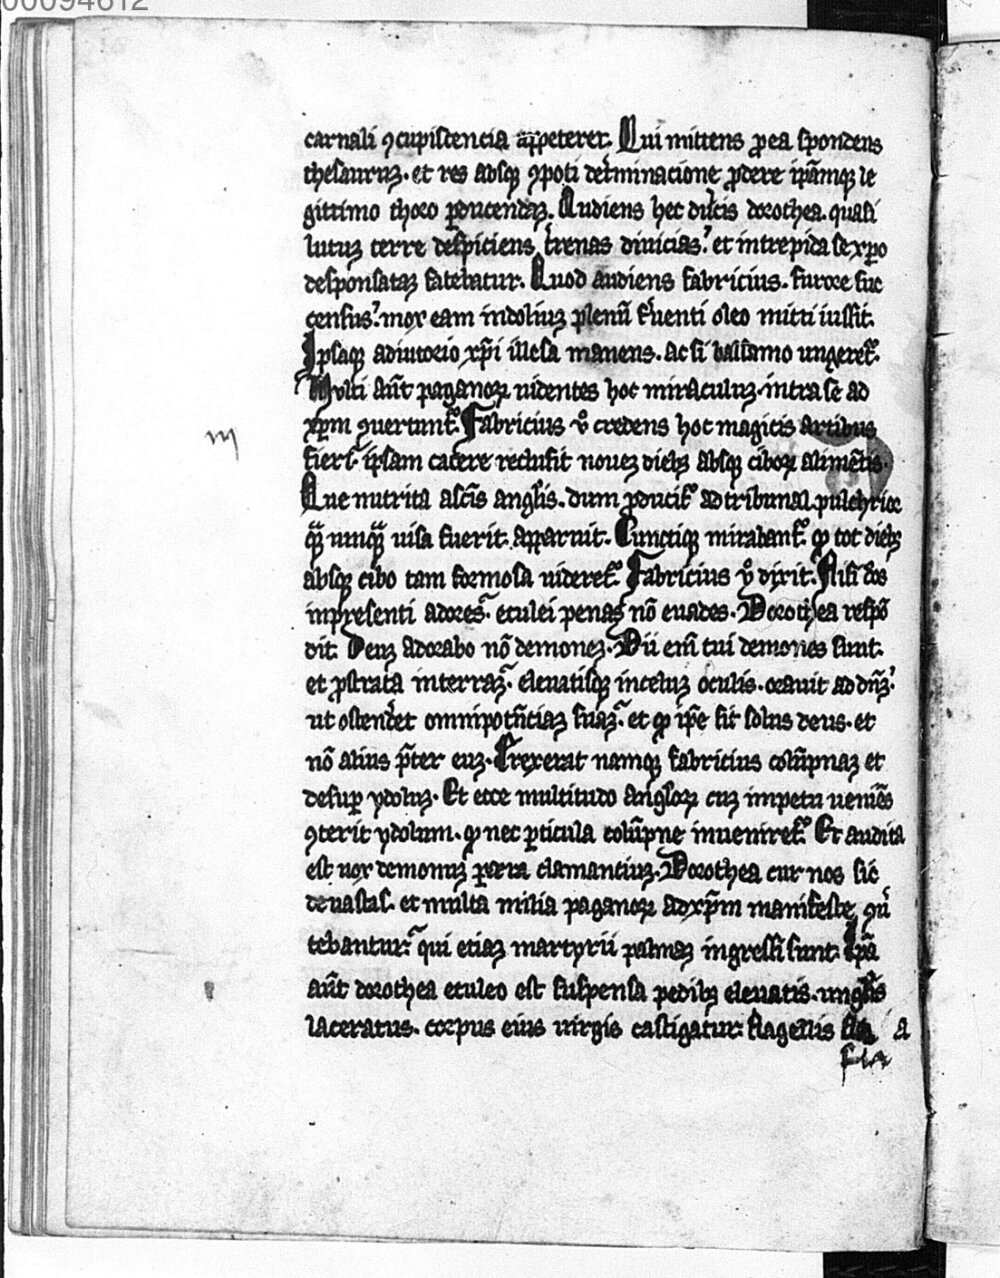 00094612
carnali ꝯcupiscencia appeteret. Qui mittens ꝓ ea spondens
thesauruꝫ. et res absqꝫ ꝯpoti det̾minacione ꝓdere ip̄amqꝫ le
gittimo thoro ꝑducendaꝫ. Audiens hec dulcis dorothea. quasi
lutuꝫ terre despiciens t̾renas diuicias. et intrepida se xp̄o
desponsataꝫ fatebatur. Quod audiens fabricius. furore suc
census. mox eam in doliuꝫ plenū f̾uenti oleo mitti iussit.
Ipsaqꝫ adiutorio xp̄i illesa manens. ac si balsamo ungeret᷑.
Multi aūt paganoꝝ uidentes hoc miraculuꝫ. intra se ad
xp̄m ꝯuertunt᷑. Fabricius v̊ credens hoc magicis artibus
fieri. ipsam carcere reclusit noueꝫ diebꝫ absqꝫ ciboꝝ alimētis.
m
Que nutrita a sc̄is angl̄is. dum ꝓducit᷑ ad tribunal. pulchrior
qᷓ unqᷓ uisa fuerit. apparuit. Cunctiqꝫ mirabant᷑. ꝙ tot diebꝫ
absqꝫ cibo tam formosa uideret᷑. Fabricius v̊ dixit. Nisi deos
inpresenti adores. eculei penas nō euades. Dorothea respō
dit. Deuꝫ adorabo nō demoneꝫ. Dii eni᷑ tui demones sunt.
et ꝓstrata in terraꝫ. eleuatisqꝫ in celuꝫ oculis. orauit ad dn̄ꝫ.
ut ostend̾et omnipotn̄ciaꝫ suaꝫ. et ꝙ ip̄e sit solus deus. et
nō alius p̄ter euꝫ. Erexerat namqꝫ fabricius colūpnaꝫ et
desuꝑ ydoluꝫ. Et ecce multitudo angl̄oꝝ cuꝫ impetu ueniēs
ꝯterit ydolum. ꝙ nec ꝑticula colūpne inueniret᷑. Et audita
est uox demonuꝫ ꝑ aera clamantiuꝫ. Dorothea cur nos sic
deuastas. et multa milia paganoꝝ ad xp̄m manifeste ꝯu̾
tebantur. qui etiaꝫ martyrii palmaꝫ ingressi sunt. Ip̄a
aūt dorothea eculeo est suspensa pedibꝫ eleuatis. ungl̄is
laceratus. corpus eius uirgis castigatur. flagellis
fla